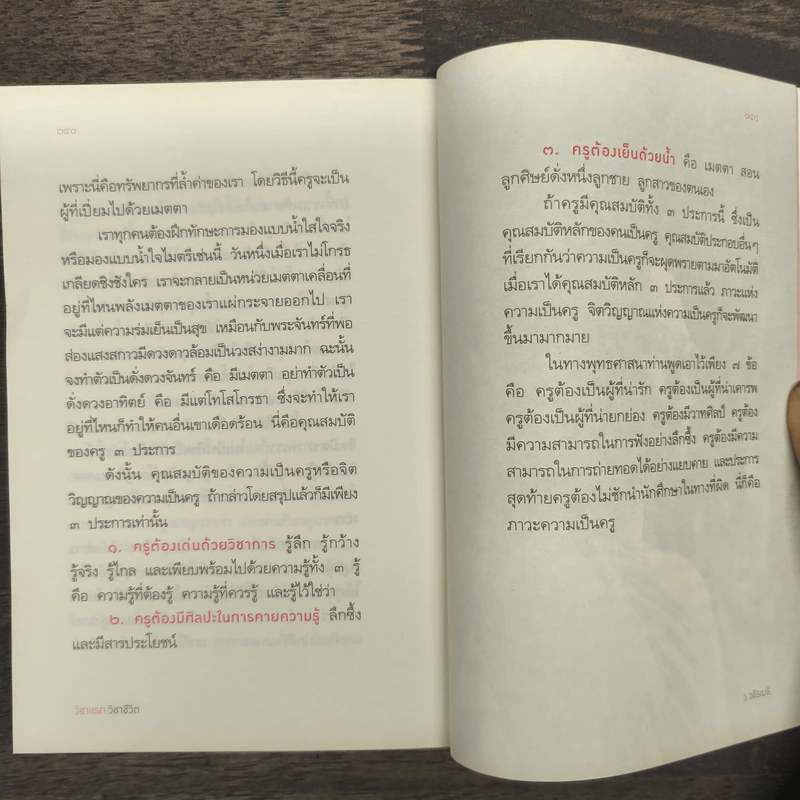 ๒๔๐
เพราะนี่คือทรัพยากรที่ล้ำค่าของเรา โดยวิธีนี้ครูจะเป็น
ผู้ที่เปี่ยมไปด้วยเมตตา
เราทุกคนต้องฝึกทักษะการมองแบบน้ำใสใจจริง
หรือมองแบบน้ำใจไมตรีเช่นนี้ วันหนึ่งเมื่อเราไม่โกรธ
เกลียดชิงชังใคร เราจะกลายเป็นหน่วยเมตตาเคลื่อนที่
อยู่ที่ไหนพลังเมตตาของเราแผ่กระจายออกไป เรา
จะมีแต่ความร่มเย็นเป็นสุข เหมือนกับพระจันทร์ที่พอ
ส่องแสงสกาวมีดวงดาวล้อมเป็นวงสง่างามมาก ฉะนั้น
จงทำตัวเป็นดั่งดวงจันทร์ คือ มีเมตตา อย่าทำตัวเป็น
ดั่งดวงอาทิตย์ คือ มีแต่โทโสโกรธา ซึ่งจะทำให้เรา
อยู่ที่ไหนก็ทำให้คนอื่นเขาเดือดร้อน นี่คือคุณสมบัติ
ของครู ๓ ประการ
ดังนั้น คุณสมบัติของความเป็นครูหรือจิต
วิญญาณของความเป็นครู ถ้ากล่าวโดยสรุปแล้วก็มีเพียง
๓ ประการเท่านั้น
๑. ครูต้องเด่นด้วยวิชาการ รู้ลึก รู้กว้าง
รู้จริง รู้ไกล และเพียบพร้อมไปด้วยความรู้ทั้ง ๓ รู้
คือ ความรู้ที่ต้องรู้ ความรู้ที่ควรรู้ และรู้ไว้ใช่ว่า
๒. ครูต้องมีศิลปะในการคายความรู้ ลึกซึ้ง
และมีสารประโยชน์
วิชาแรก วิชาชีวิต
๓. ครูต้องเย็นด้วยน้ำ คือ เมตตา สอน
ลูกศิษย์ดั่งหนึ่งลูกชาย ลูกสาวของตนเอง
ถ้าครูมีคุณสมบัติทั้ง ๓ ประการนี้ ซึ่งเป็น
คุณสมบัติหลักของคนเป็นครู คุณสมบัติประกอบอื่นๆ
ที่เรียกกันว่าความเป็นครูก็จะผุดพรายตามมาอัตโนมัติ
เมื่อเราได้คุณสมบัติหลัก ๓ ประการแล้ว ภาวะแห่ง
ความเป็นครู จิตวิญญาณแห่งความเป็นครูก็จะพัฒนา
ขึ้นมามากมาย
ในทางพุทธศาสนาท่านพูดเอาไว้เพียง ๗ ข้อ
คือ ครูต้องเป็นผู้ที่น่ารัก ครูต้องเป็นผู้ที่น่าเคารพ
ครูต้องเป็นผู้ที่น่ายกย่อง ครูต้องมีวาทศิลป์ ครูต้อง
มีความสามารถในการฟังอย่างลึกซึ้ง ครูต้องมีความ
สามารถในการถ่ายทอดได้อย่างแยบคาย และประการ
สุดท้ายครูต้องไม่ชักนำนักศึกษาในทางที่ผิด นี่ก็คือ
ภาวะความเป็นครู
ว.วชิรเมธี